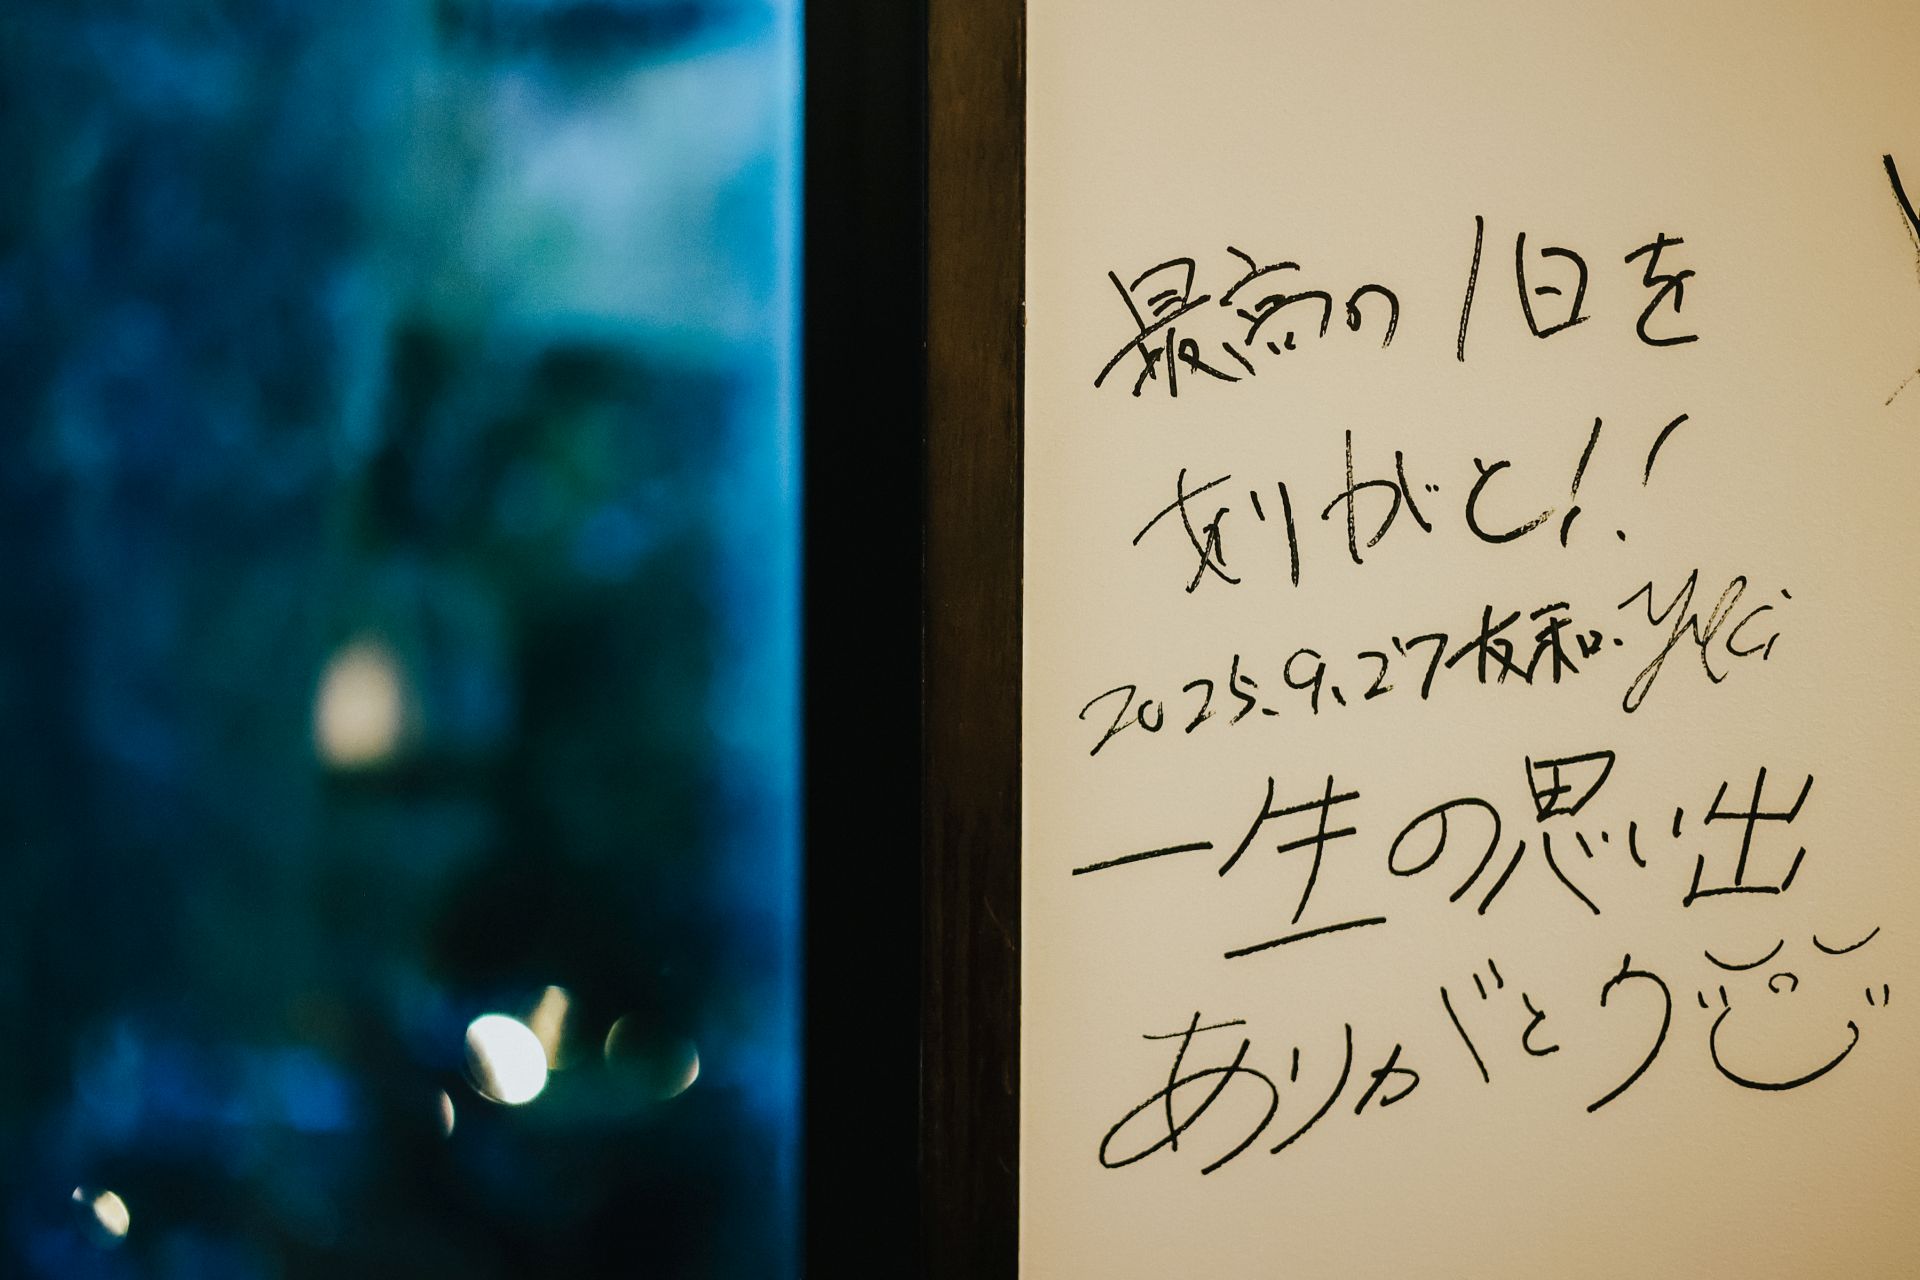 最高の1日を
ありがと!!
2025.9.27 友和. Yuki
一生の思い出
ありがとう